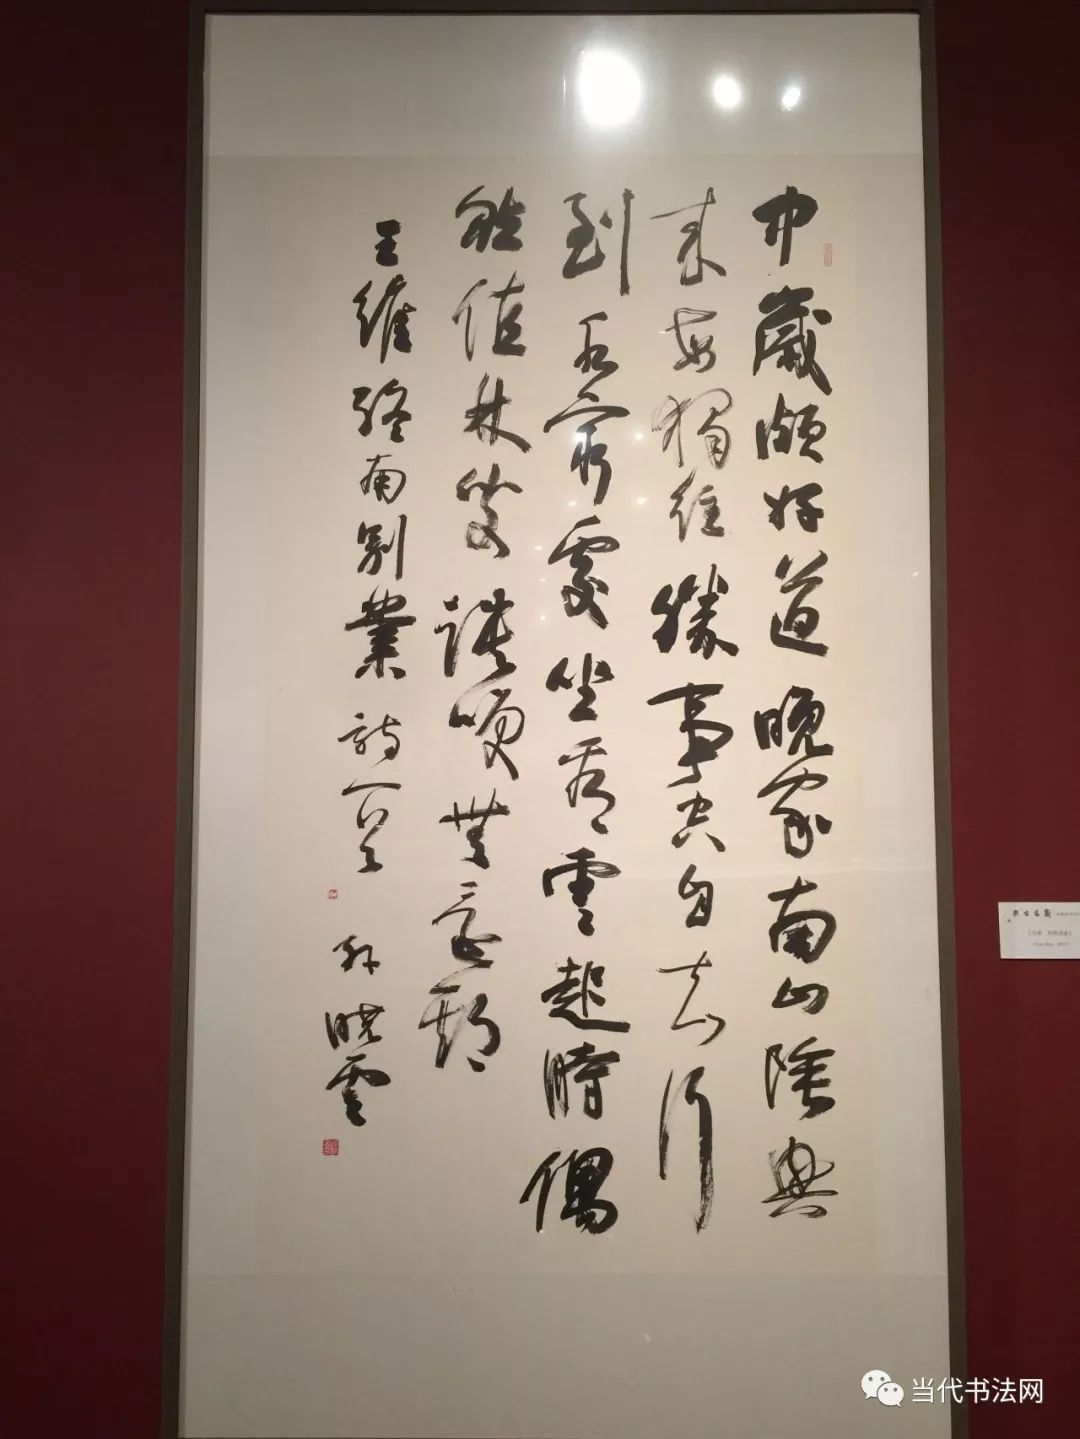 中歲頗好道晚家南山陲興
來每獨往勝事空自知行
到水窮處坐看雲起時偶
然值林叟談笑無還期
王維終南別業詩一首
孫曉雲
当代书法网